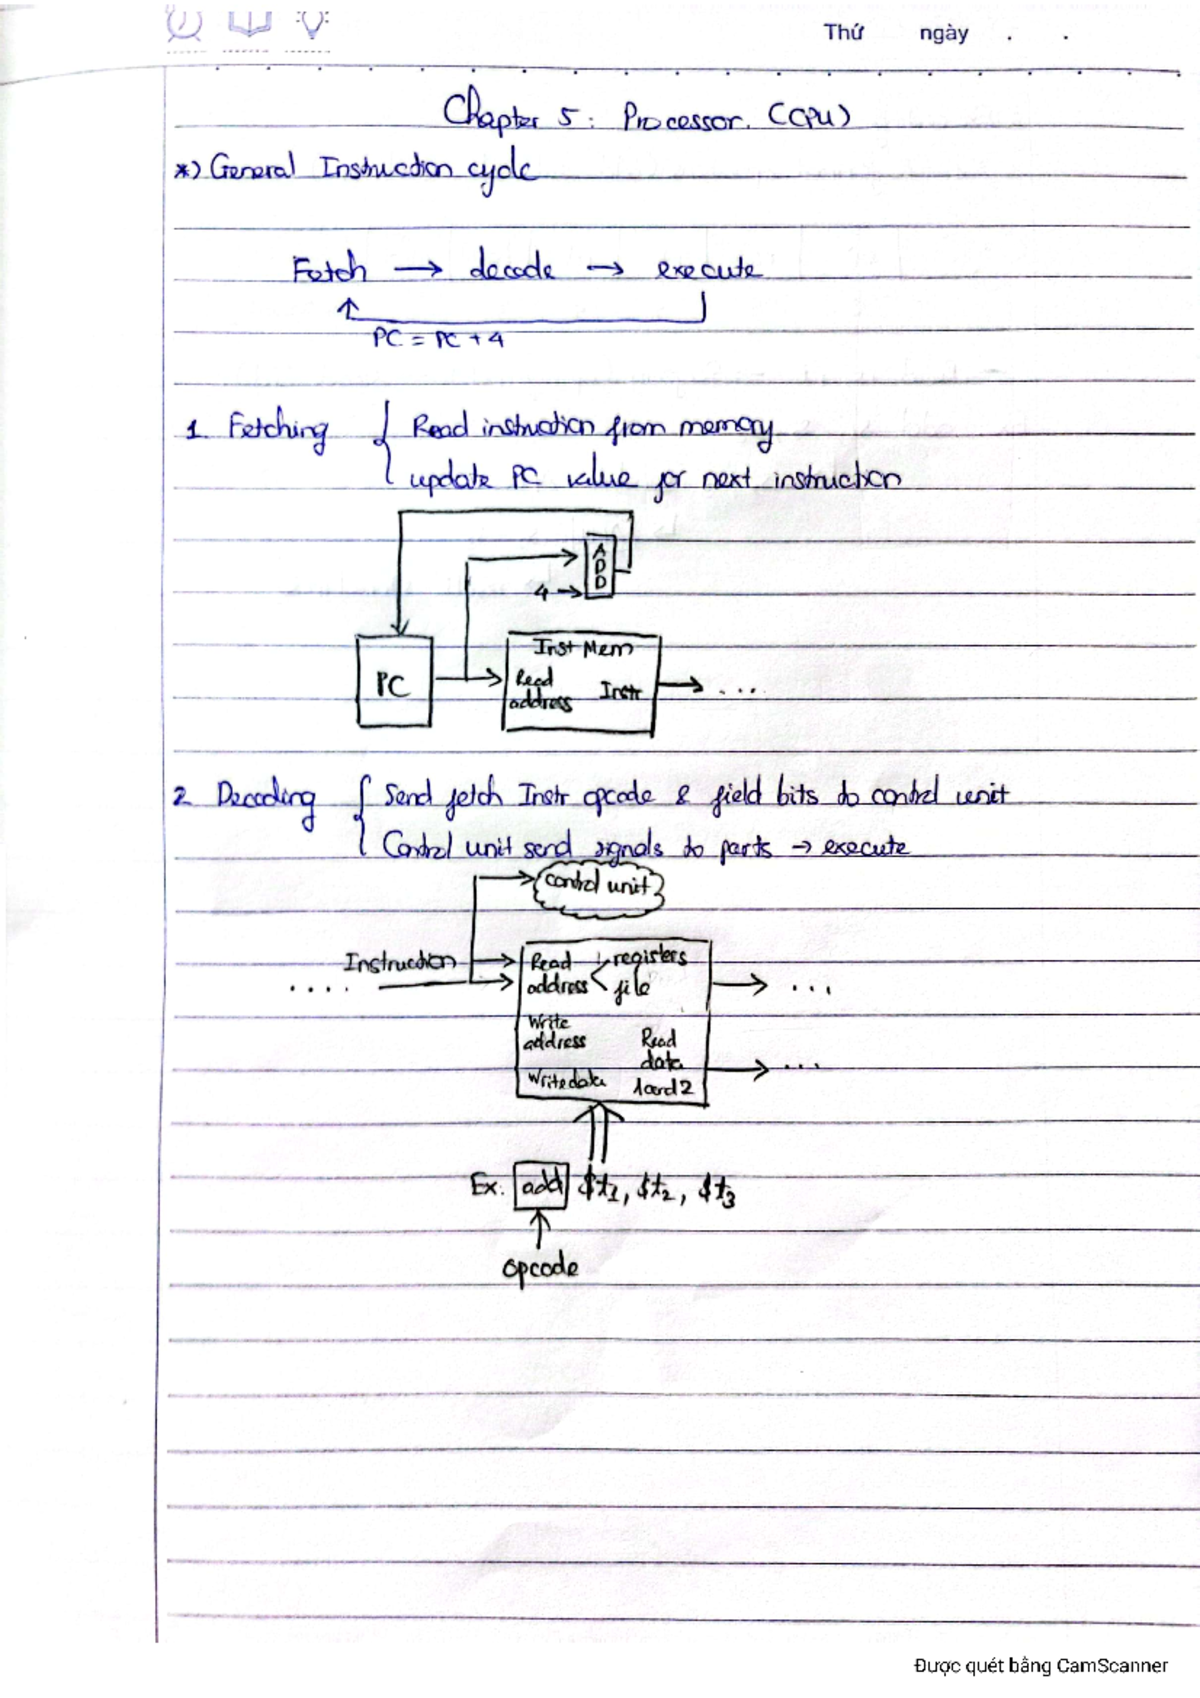 Thứ ngày . .
Chapter 5: Processor. (CPU)
*) General Instruction cycle
Fetch → decode → execute
PC = PC + 4
1. Fetching { Read instruction from memory
update PC value for next instruction
ADD
4 →
Inst Mem
PC
Read address
Instr
...
2 Decoding { Send fetch Instr opcode & field bits to control unit
Control unit send signals to parts → execute
control unit
Instruction
....
Read address < registers file
...
Write address
Read data 1 and 2
...
Write data
Ex: add $t1, $t2, $t3
opcode
Được quét bằng CamScanner